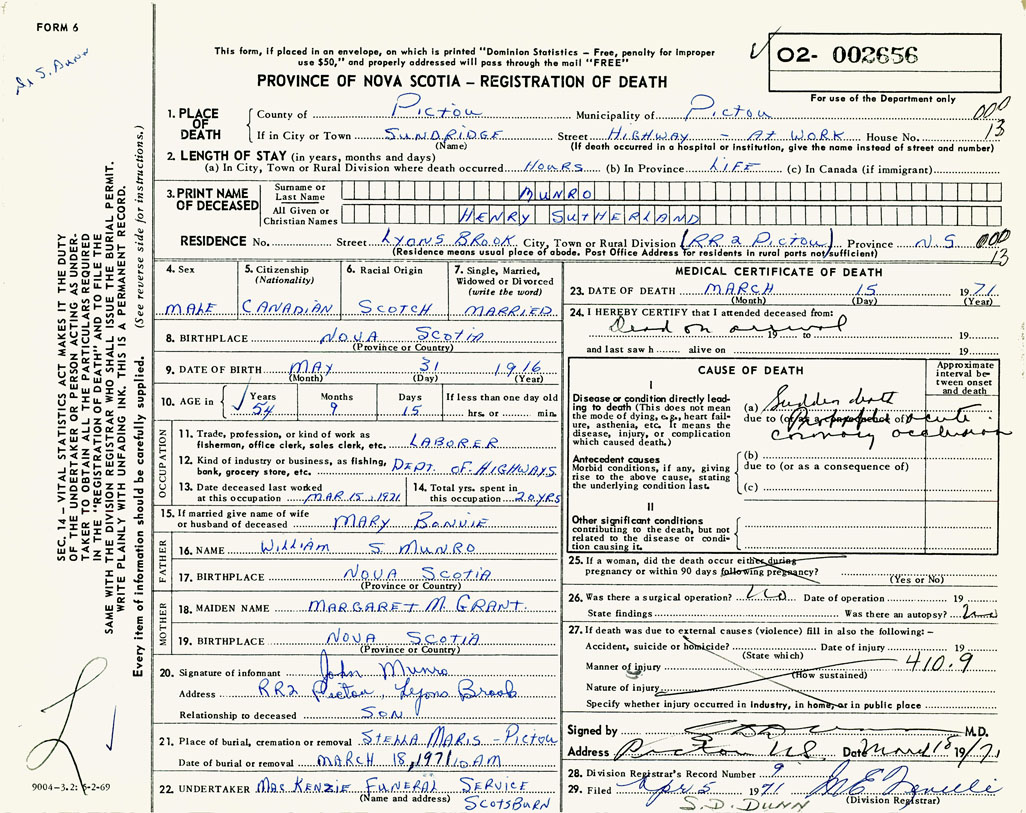 FORM 6
Dr S. Dunn
This form, if placed in an envelope, on which is printed "Dominion Statistics – Free, penalty for improper
use $50," and properly addressed will pass through the mail "FREE"
PROVINCE OF NOVA SCOTIA – REGISTRATION OF DEATH
O2- 002656
For use of the Department only
1. PLACE OF DEATH
County of Pictou Municipality of Pictou 000
If in City or Town Sundridge Street Highway – At Work House No. 13
(Name) (If death occurred in a hospital or institution, give the name instead of street and number)
2. LENGTH OF STAY (in years, months and days)
(a) In City, Town or Rural Division where death occurred Hours (b) In Province Life (c) In Canada (if immigrant)
3. PRINT NAME OF DECEASED
Surname or Last Name MUNRO
All Given or Christian Names HENRY SUTHERLAND
RESIDENCE No. Street Lyons Brook City, Town or Rural Division (RR2 Pictou) Province N.S 000
(Residence means usual place of abode. Post Office Address for residents in rural parts not sufficient) 13
4. Sex
MALE
5. Citizenship
(Nationality)
CANADIAN
6. Racial Origin
SCOTCH
7. Single, Married,
Widowed or Divorced
(write the word)
MARRIED
8. BIRTHPLACE NOVA SCOTIA
(Province or Country)
9. DATE OF BIRTH MAY 31 1916
(Month) (Day) (Year)
10. AGE in Years Months Days If less than one day old
54 9 15 hrs. or min.
OCCUPATION
11. Trade, profession, or kind of work as
fisherman, office clerk, sales clerk, etc. LABORER
12. Kind of industry or business, as fishing,
bank, grocery store, etc. DEPT. OF HIGHWAYS
13. Date deceased last worked
at this occupation MAR 15, 1971
14. Total yrs. spent in
this occupation 20 YRS
15. If married give name of wife
or husband of deceased MARY BONNIE
FATHER
16. NAME WILLIAM S. MUNRO
17. BIRTHPLACE NOVA SCOTIA
(Province or Country)
MOTHER
18. MAIDEN NAME MARGARET M. GRANT.
19. BIRTHPLACE NOVA SCOTIA
(Province or Country)
20. Signature of informant John Munro
Address RR2 Pictou, Lyons Brook
Relationship to deceased SON
21. Place of burial, cremation or removal STELLA MARIS – PICTOU
Date of burial or removal MARCH 18, 1971 10 AM
22. UNDERTAKER MacKENZIE FUNERAL SERVICE
(Name and address) SCOTSBURN
MEDICAL CERTIFICATE OF DEATH
23. DATE OF DEATH MARCH 15 1971
(Month) (Day) (Year)
24. I HEREBY CERTIFY that I attended deceased from:
Dead on arrival 19 to 19
and last saw h alive on 19
CAUSE OF DEATH
Approximate
interval be-
tween onset
and death
I
Disease or condition directly lead-
ing to death (This does not mean
the mode of dying, e.g., heart fail-
ure, asthenia, etc. It means the
disease, injury, or complication
which caused death.)
(a) Sudden death
due to (or as a consequence of) acute
coronary occlusion
Antecedent causes
Morbid conditions, if any, giving
rise to the above cause, stating
the underlying condition last.
(b)
due to (or as a consequence of)
(c)
II
Other significant conditions
contributing to the death, but not
related to the disease or condi-
tion causing it.
25. If a woman, did the death occur either during
pregnancy or within 90 days following pregnancy?
(Yes or No)
26. Was there a surgical operation? No Date of operation 19
State findings Was there an autopsy? No
27. If death was due to external causes (violence) fill in also the following: –
Accident, suicide or homicide? Date of injury 19
(State which)
Manner of injury 410.9
(How sustained)
Nature of injury
Specify whether injury occurred in industry, in home, or in public place
Signed by M.D.
Address Pictou N.S. Date March 18 1971
28. Division Registrar's Record Number 9
29. Filed Apr 5 1971
(Division Registrar)
S.D. DUNN
SEC. 14 – VITAL STATISTICS ACT MAKES IT THE DUTY
OF THE UNDERTAKER OR PERSON ACTING AS UNDER-
TAKER TO OBTAIN ALL THE PARTICULARS REQUIRED
IN THE "REGISTRATION OF DEATH" AND TO FILE THE
SAME WITH THE DIVISION REGISTRAR WHO SHALL ISSUE THE BURIAL PERMIT.
WRITE PLAINLY WITH UNFADING INK. THIS IS A PERMANENT RECORD.
Every item of information should be carefully supplied. (See reverse side for instructions.)
9004-3.2: 6-2-69